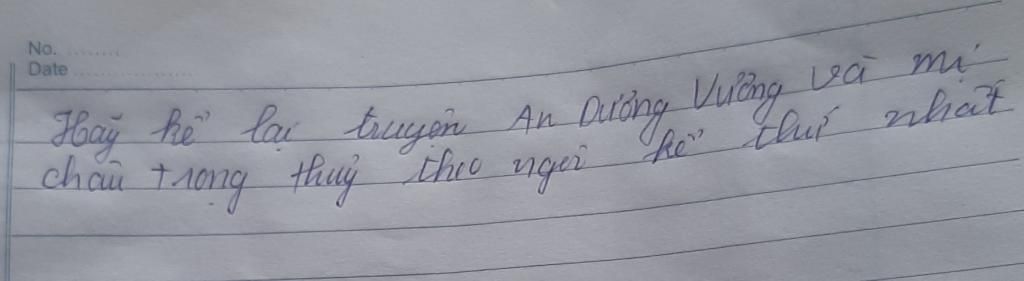 No. ..........
Date ......................
Hãy kể lại truyện An Dương Vương và mị
châu trọng thuỷ theo ngôi kể thứ nhất